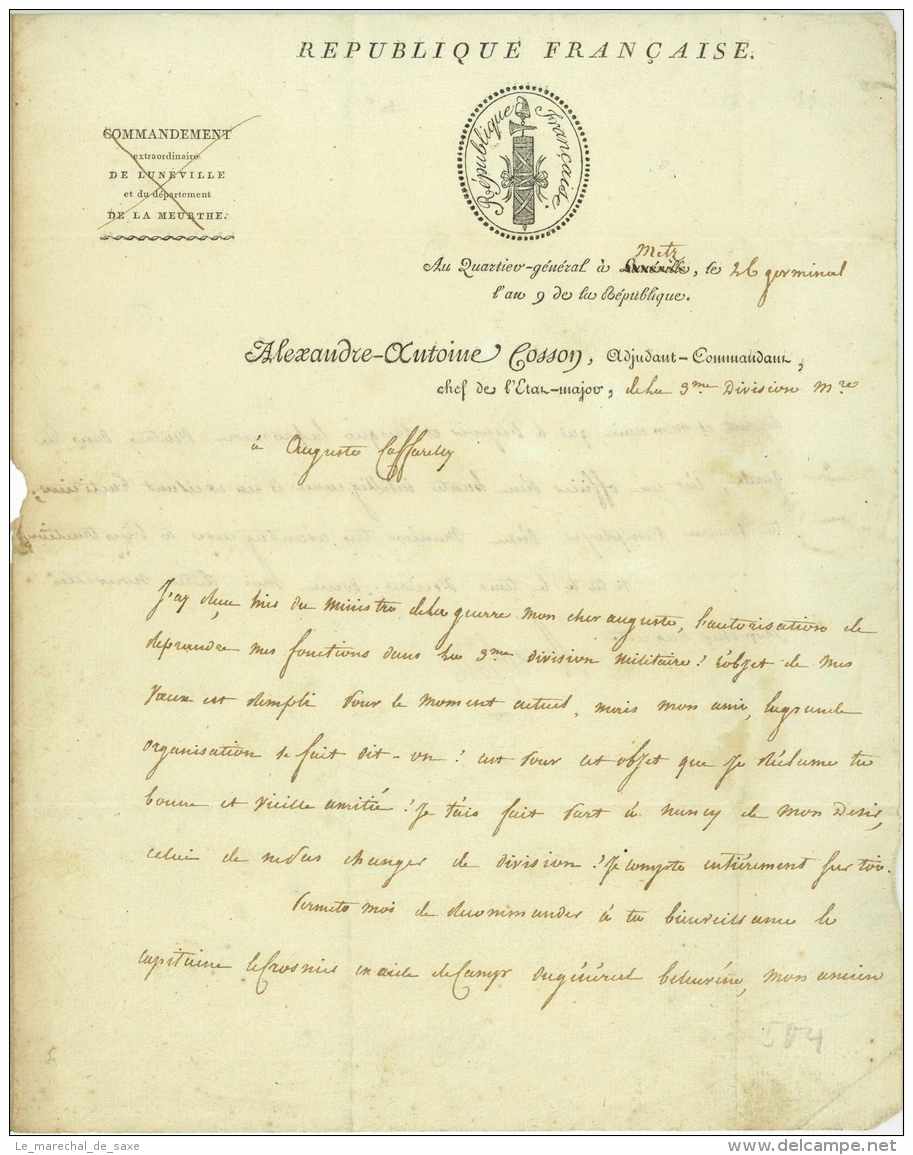 REPUBLIQUE FRANÇAISE.
République Française.
COMMANDEMENT
extraordinaire
DE LUNEVILLE
et du département
DE LA MEURTHE.
Metz
Au Quartier-général à Lunéville, le 26 germinal
l'an 9 de la République.
Alexandre-Antoine Cosson, Adjudant-Commandant,
chef de l'Etat-major, de la 3me Division Mre
à Auguste Caffarelly
J'ay obtenu du ministre de la guerre mon cher auguste, l'autorisation de
reprendre mes fonctions dans la 3me division militaire! l'objet de mes
vœux est rempli pour le moment actuel, mais mon ami, la grande
organisation se fait dit-on! c'est pour cet objet que je réclame ta
bonne et vieille amitié! Je t'ais fait part à nancy de mon desir,
celui de ne pas changer de division! Je compte entièrement sur toi.
Permets mois de recommander à ta bienveillance le
capitaine ex aide de camp du général mon ancien
504
Le_marechal_de_saxe
delcampe.net